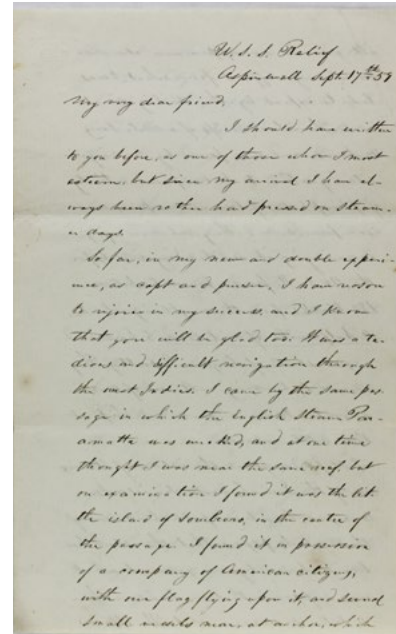 U.S.S. Relief
Aspinwall Sept. 17th 59
My very dear friend,
I should have written
to you before, as one of those whom I most
esteem, but since my arrival I have al-
ways been rather hard pressed on steam-
er days.
So far, in my new and double experi-
ence, as capt and purser, I have reason
to rejoice in my success, and I know
that you will be glad too. It was a te-
dious and difficult navigation through
the West Indies. I came by the same pas-
sage in which the English Steamer Par-
amatta was wrecked, and at one time
thought I was near the same reef, but
on examination I found it was the lit-
the island of Sombrero, in the centre of
the passage. I found it in possession
of a company of American citizens,
with our flag flying upon it, and several
small vessels near, at anchor, which